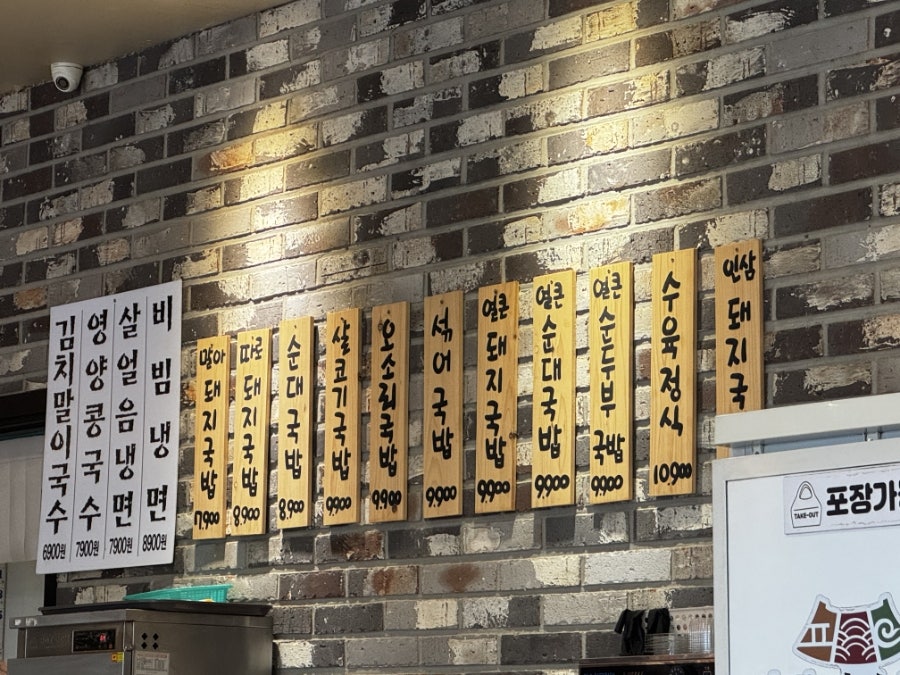 김치말이국수 6900원
영양콩국수 7900원
살얼음냉면 7900원
비빔냉면 8900원
말아 돼지국밥 7,900
따로 돼지국밥 8,900
순대국밥 8,900
살코기국밥 9,900
오소리국밥 9,900
섞어국밥 9,900
얼큰 돼지국밥 9,900
얼큰 순대국밥 9,900
얼큰 순두부 국밥 9,900
수육정식 10,900
인삼 돼지국
TAKE-OUT
포장가